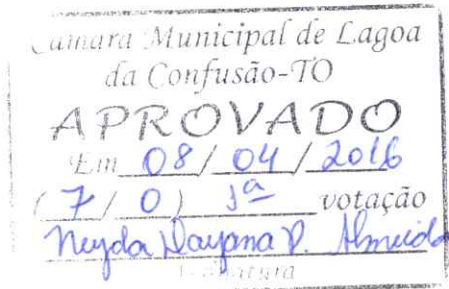 Câmara Municipal de Lagoa
da Confusão-TO
APROVADO
Em 08/04/2016
(7/0) 1ª votação
Neyda Dayana P. Almeida
Assinatura